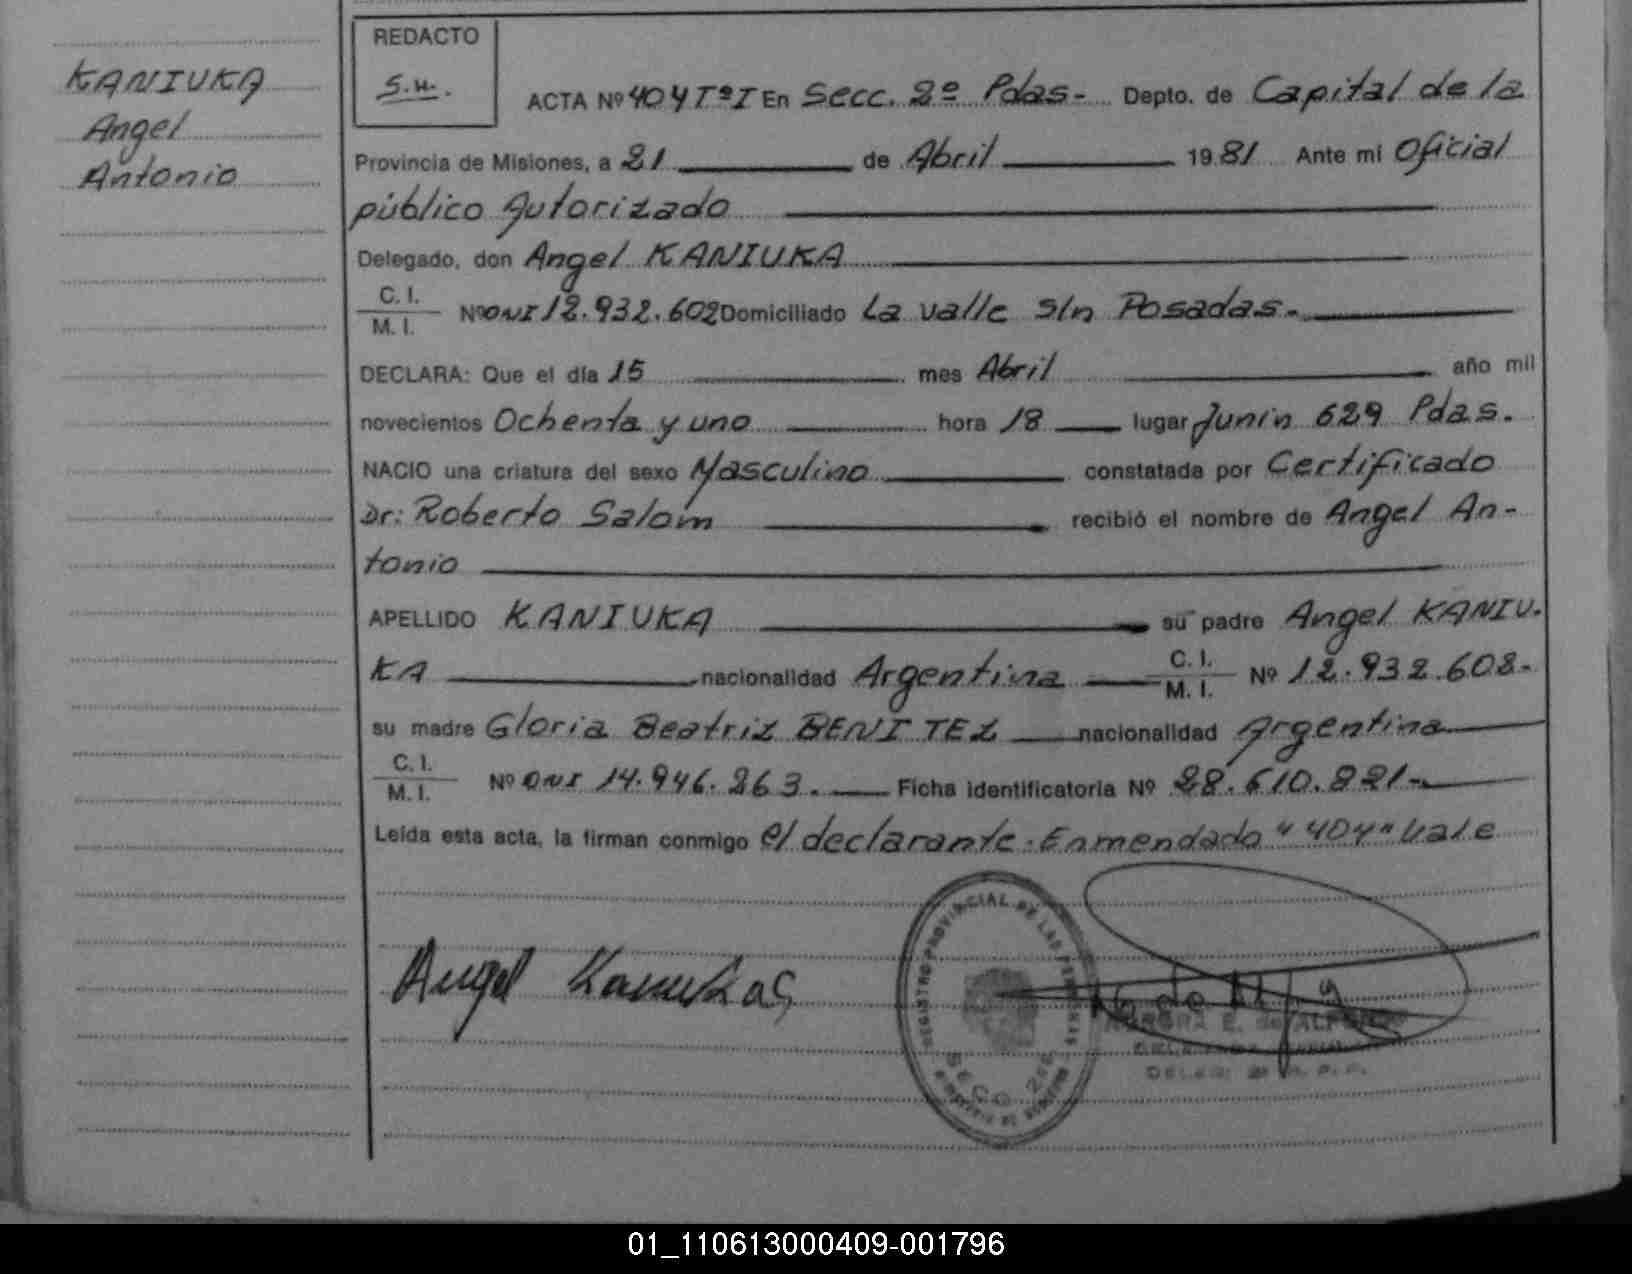 KANIUKA
Angel
Antonio
REDACTO
S.H.
ACTA Nº 404 TºI En Secc. 2º Pdas- Depto. de Capital de la
Provincia de Misiones, a 21 de Abril 1981 Ante mi Oficial
público Autorizado
Delegado, don Angel KANIUKA
C. I.
M. I. Nº DNI 12.932.602 Domiciliado La valle s/n Posadas.
DECLARA: Que el día 15 mes Abril año mil
novecientos Ochenta y uno hora 18 lugar Junin 629 Pdas.
NACIO una criatura del sexo Masculino constatada por Certificado
Dr: Roberto Salom recibió el nombre de Angel An-
tonio
APELLIDO KANIUKA su padre Angel KANIU-
KA nacionalidad Argentina C. I. M. I. Nº 12.932.602-
su madre Gloria Beatriz BENITEZ nacionalidad Argentina
C. I.
M. I. Nº DNI 14.946.263. Ficha identificatoria Nº 28.610.221-
Leída esta acta, la firman conmigo el declarante. Enmendado "404" Vale
Angel
REGISTRO PROVINCIAL DE LAS PERSONAS
SECC. 2da
E. de
01_110613000409-001796